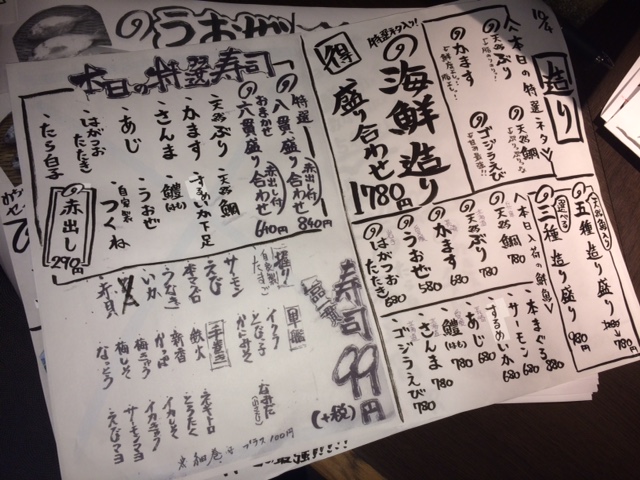 10/4
造り
本日の特選ネタ
天然ぶり
天然鯛
かます
ゴジラえび
特選ネタ入り!
得
の海鮮造り
盛り合わせ
1780円
五種造り盛り
980円
選べる
三種造り盛り
980円
本日入荷の鮮魚
天然鯛 780
天然ぶり 780
かます 680
うおぜ 580
はがつおたたき 680
本まぐろ 880
サーモン 680
するめいか 680
あじ 780
鱧(はも) 780
さんま 780
ゴジラえび 780
本日の特選寿司
特選
八貫盛り合わせ
赤出し付
840円
おまかせ
六貫盛り合わせ
赤出し付
640円
天然ぶり
天然鯛
かます
するめいか下足
さんま
鱧(はも)
あじ
うおぜ
はがつおたたき
自家製つくね
たら白子
の赤出し
290円
寿司99円
(+税)
握り
サーモン
えび
本マグロ
うなぎ
いか
赤貝
軍艦
イクラ
とびこ
かにみそ
手巻き
鉄火
新香
かっぱ
梅きゅう
梅しそ
なっとう
ネギトロ
とろたく
イカしそ
イカキムチ
サーモンマヨ
えびマヨ
※細巻はプラス100円